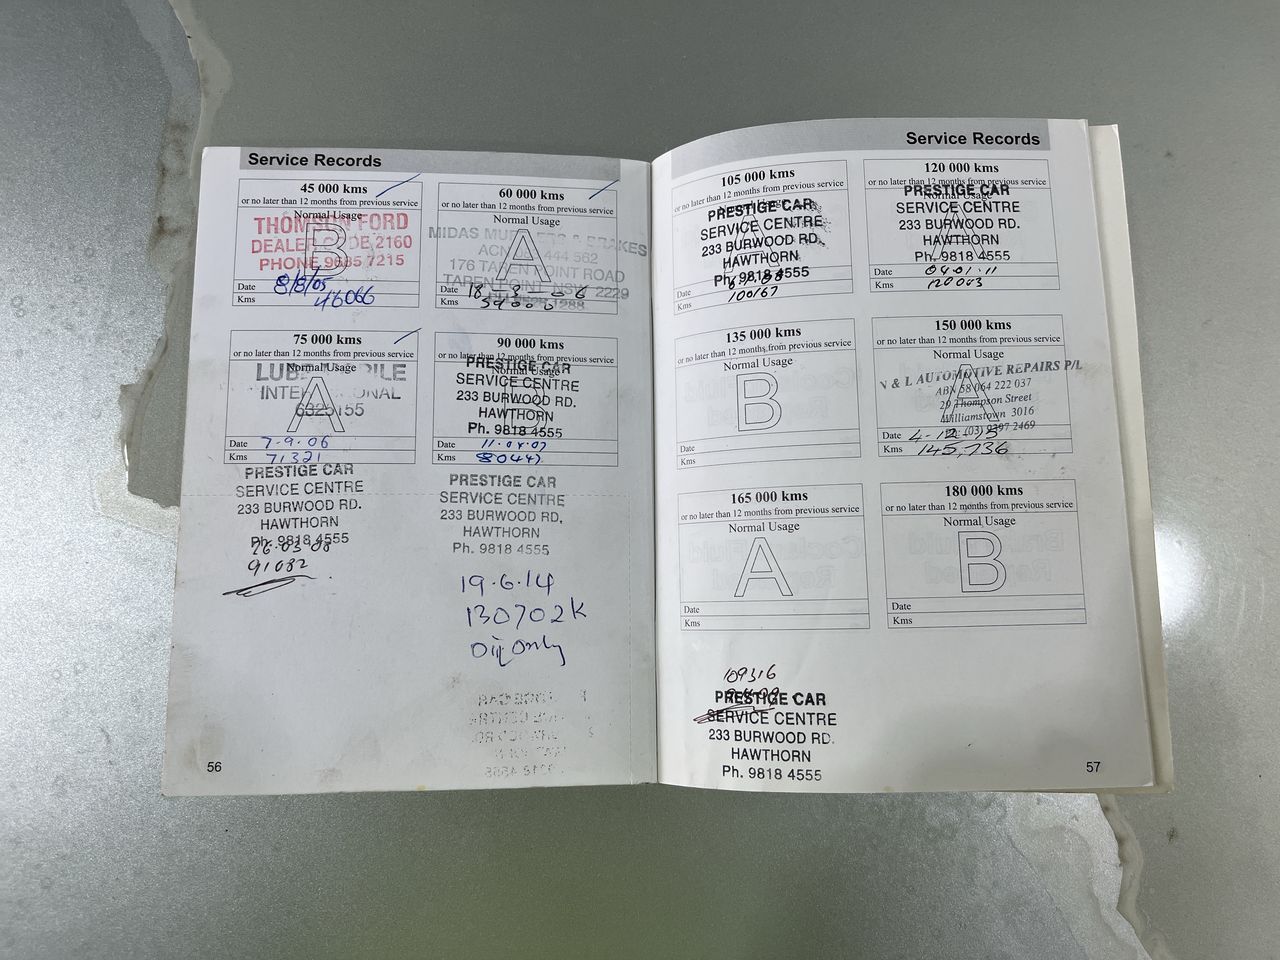 Service Records
45 000 kms
or no later than 12 months from previous service
Normal Usage
THOMSON FORD
DEALER CODE 2160
PHONE 9685 7215
B
Date 8/8/05
Kms 46066
60 000 kms
or no later than 12 months from previous service
Normal Usage
MIDAS MUFFLERS & BRAKES
ACN 444 562
176 TAREN POINT ROAD
TAREN POINT NSW 2229
1288
A
Date 18-3-06
Kms
75 000 kms
or no later than 12 months from previous service
Normal Usage
INTERNATIONAL
A
Date 7-9-06
Kms 71321
PRESTIGE CAR
SERVICE CENTRE
233 BURWOOD RD.
HAWTHORN
Ph. 9818 4555
26-03-08
91082
90 000 kms
or no later than 12 months from previous service
Normal Usage
B
PRESTIGE CAR
SERVICE CENTRE
233 BURWOOD RD.
HAWTHORN
Ph. 9818 4555
Date 11.04.07
Kms 80447
PRESTIGE CAR
SERVICE CENTRE
233 BURWOOD RD,
HAWTHORN
Ph. 9818 4555
19.6.14
130702K
Oil only
56
Service Records
105 000 kms
or no later than 12 months from previous service
Normal Usage
A
PRESTIGE CAR
SERVICE CENTRE
233 BURWOOD RD.
HAWTHORN
Ph. 9818 4555
Date
Kms 100167
120 000 kms
or no later than 12 months from previous service
Normal Usage
A
PRESTIGE CAR
SERVICE CENTRE
233 BURWOOD RD.
HAWTHORN
Ph. 9818 4555
Date 04.01.11
Kms 120003
135 000 kms
or no later than 12 months from previous service
Normal Usage
B
Date
Kms
150 000 kms
or no later than 12 months from previous service
Normal Usage
A
V & L AUTOMOTIVE REPAIRS P/L
ABN 58 064 222 037
29 Thompson Street
Williamstown 3016
Ph: (03) 9397 2469
Date 4-12-15
Kms 145,736
165 000 kms
or no later than 12 months from previous service
Normal Usage
A
Date
Kms
180 000 kms
or no later than 12 months from previous service
Normal Usage
B
Date
Kms
109316
PRESTIGE CAR
SERVICE CENTRE
233 BURWOOD RD.
HAWTHORN
Ph. 9818 4555
57